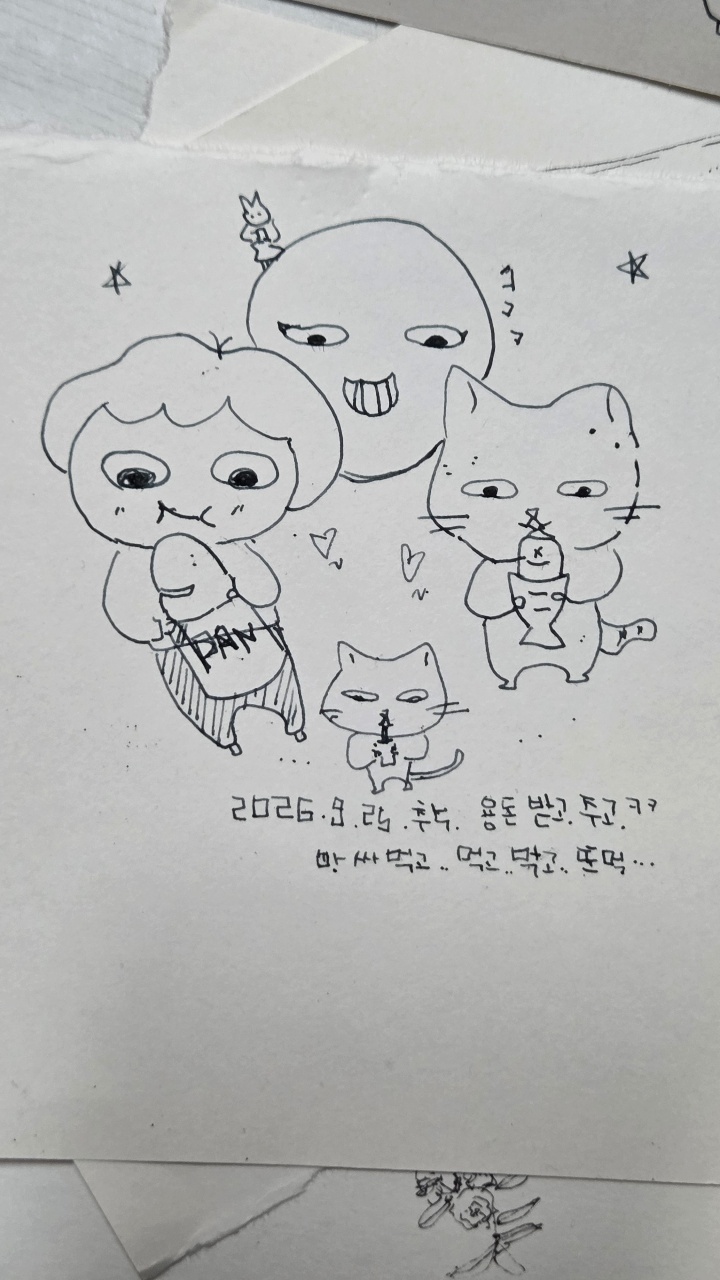 ㅋ
ㅋ
ㅋ
DAN
2026.9.25.추석. 용돈 받고.주고.ㅋㅋ
막 싸먹고.. 먹고..먹고.. 또먹...